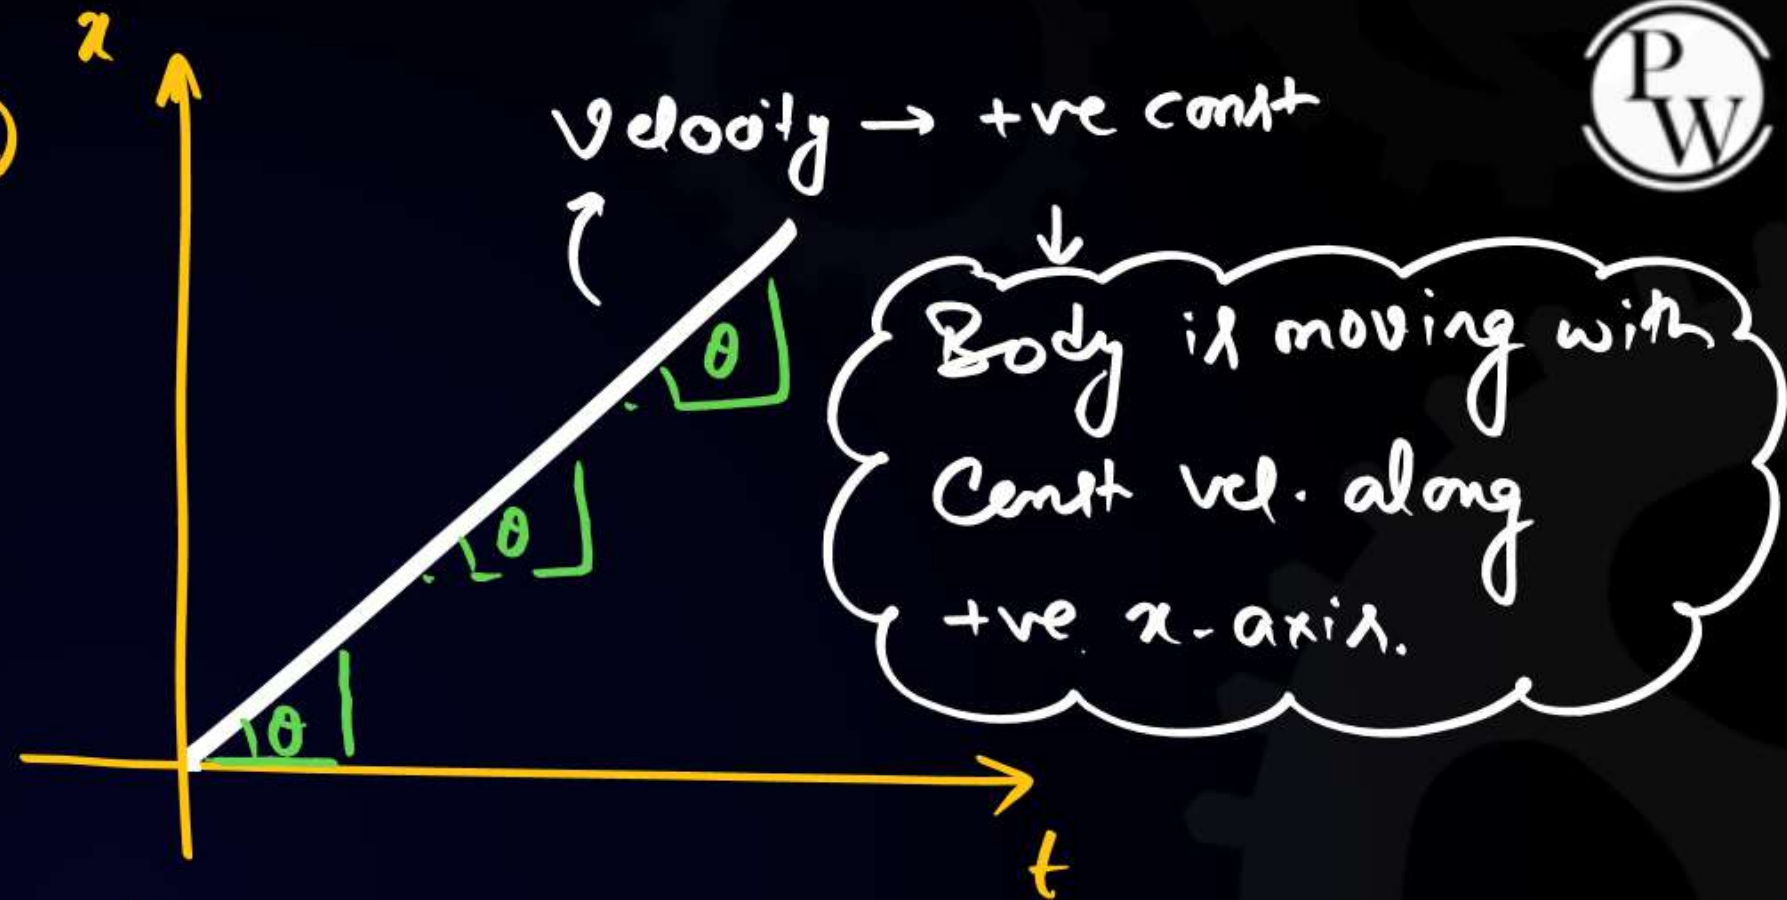 x
)
Velocity → +ve const
P
W
↓
Body is moving with
Const vel. along
+ve x-axis.
θ
θ
θ
t